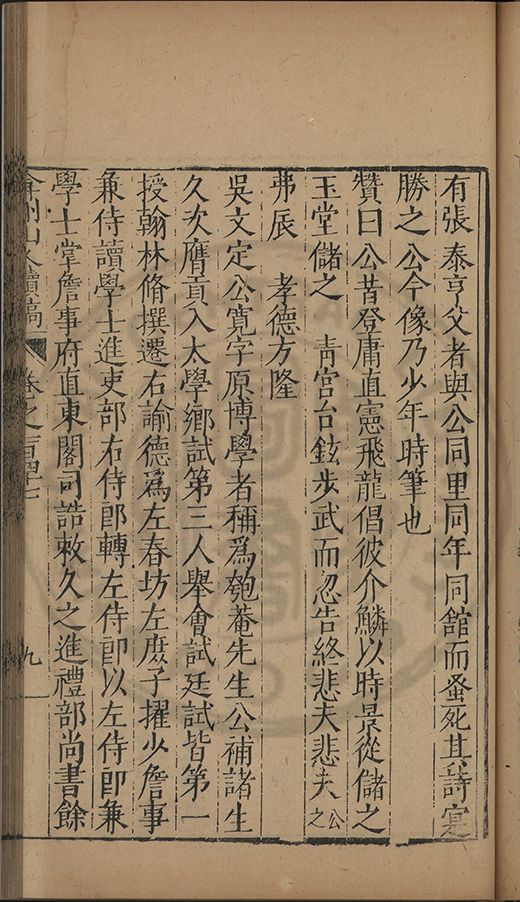 有張泰亨父者與公同里同年同館而蚤死其詩寔
勝之公今像乃少年時筆也
贊曰公昔登庸直憲飛龍倡彼介鱗以時景從儲之
玉堂儲之 青宮台鉉步武而忽告終悲夫悲夫公之
弗辰 孝德方隆
吳文定公寬字原博學者稱爲匏菴先生公補諸生
久次膺貢入太學鄉試第三人舉會試廷試皆第一
授翰林脩撰遷右諭德爲左春坊左庶子擢少詹事
兼侍讀學士進吏部右侍郎轉左侍郎以左侍郎兼
學士掌詹事府直東閣司誥敕久之進禮部尚書餘
弇州山人續稿 卷之一百四十七 九